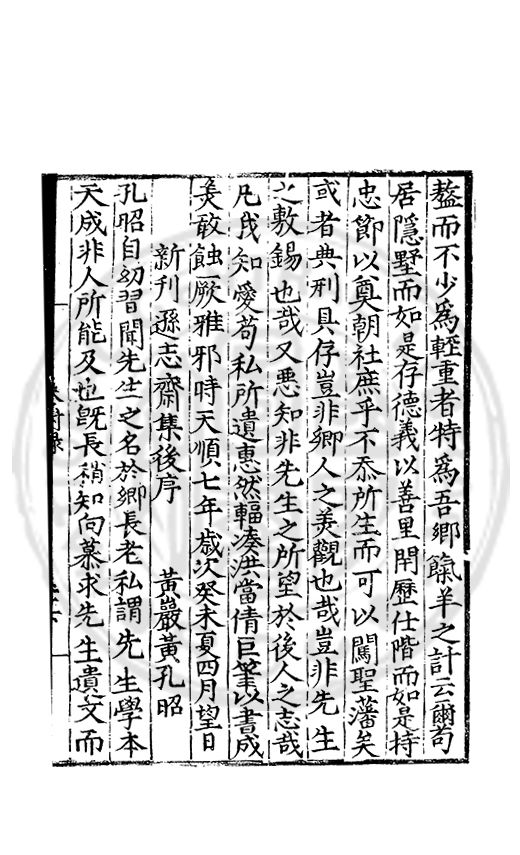 嫠而不少為輕重者特為吾鄉餼羊之計云爾苟
居隱墅而如是存德義以善里閈歷仕階而如是持
忠節以奠朝社庶乎不忝所生而可以闖聖藩矣
或者典刑具存豈非鄉人之羙觀也哉豈非先生
之敷錫也哉又惡知非先生之所望於後人之志哉
凡我知愛苟私所遺惠然輻湊洪當倩巨筆以書成
羙敢蝕厥雅邪時天順七年歲次癸未夏四月望日
新刊遜志齋集後序
黃巖黃孔昭
孔昭自幼習聞先生之名於鄉長老私謂先生學本
天成非人所能及也旣長稍知向慕求先生遺文而
附錄